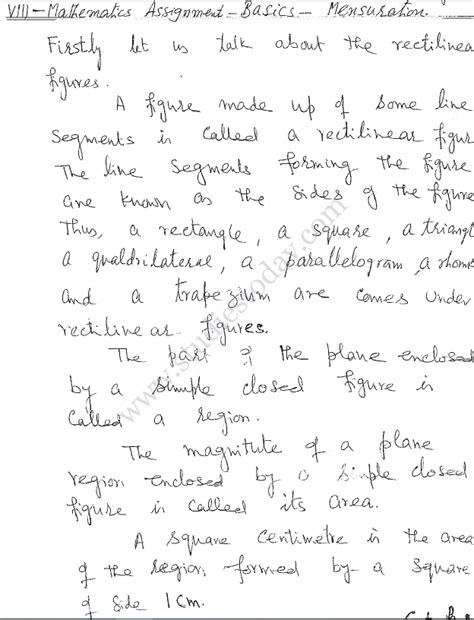 VIII - Mathematics Assignment - Basics - Mensuration.
Firstly let us talk about the rectilinea
figures.
A figure made up of some line
segments is called a rectilinear figur
The line segments forming the figure
are known as the sides of the figure
Thus, a rectangle, a square, a triangl
a qualdrilateral, a parallelogram, a rhom
and a trapezium are comes under
rectilinear figures.
The part of the plane enclosed
by a simple closed figure is
called a region.
The magnitute of a plane
region enclosed by a simple closed
figure is called its area.
A square centimetre is the area
of the region formed by a square
of side 1 cm.
www.studiestoday.com